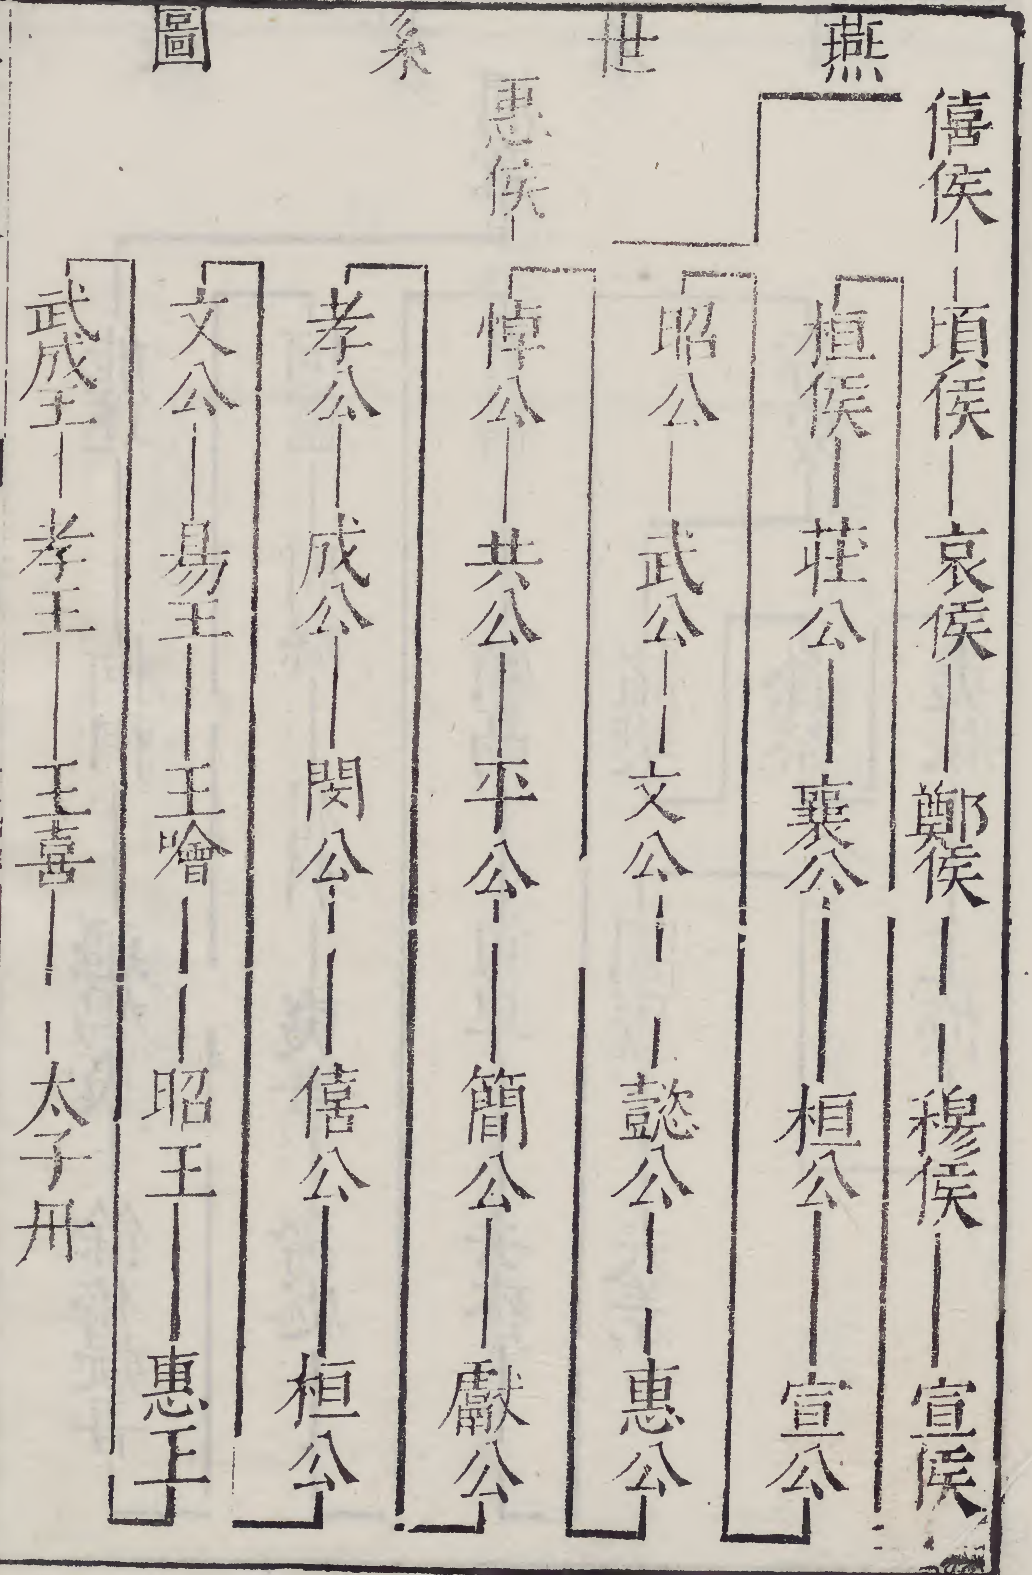 燕世系圖
惠侯
僖侯
頃侯
哀侯
鄭侯
穆侯
宣侯
桓侯
莊公
襄公
桓公
宣公
昭公
武公
文公
懿公
惠公
悼公
共公
平公
簡公
獻公
孝公
成公
閔公
僖公
桓公
文公
易王
王噲
昭王
惠王
武成王
孝王
王喜
太子丹